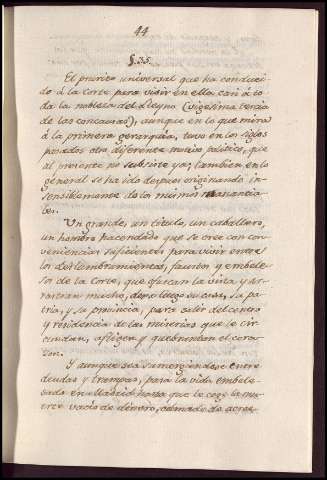 44
§. 35.
El prurito universal que ha conduci-
do á la Corte para vivir en ella casi á to-
da la nobleza del Reyno (vigesima tercia
de las concausas), aunque en lo que mira
á la primera gerarquía, tuvo en los siglos
pasados otro diferente motivo político, que
al presente no subsiste ya; tambien en lo
general se ha ido despues originando in-
sensiblemente de los mismos manantia-
les.
Un grande, un título, un caballero,
un hombre hacendado que se cree con con-
veniencias suficientes para vivir entre
los deslumbramientos, faustos y embele-
sos de la Corte, que ofuscan la vista y ar-
rastran mucho, deja luego su casa, su pa-
tria, y su provincia, para salir del centro
y residencia de las miserias que le cir-
cundan, afligen y quebrantan el cora-
zon.
Y aunque sea sumergiendose entre
deudas y trampas, pasa la vida embele-
sado en Madrid hasta que le coge la mu-
erte vacio de dinero, colmado de acree-